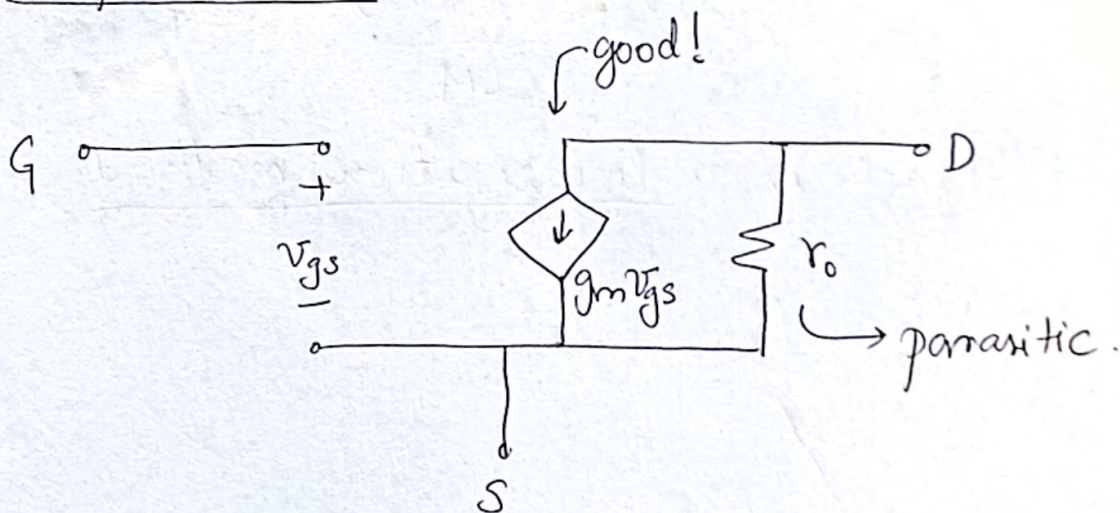 good!
G
D
+
vgs
−
gmvgs
ro
parasitic.
S